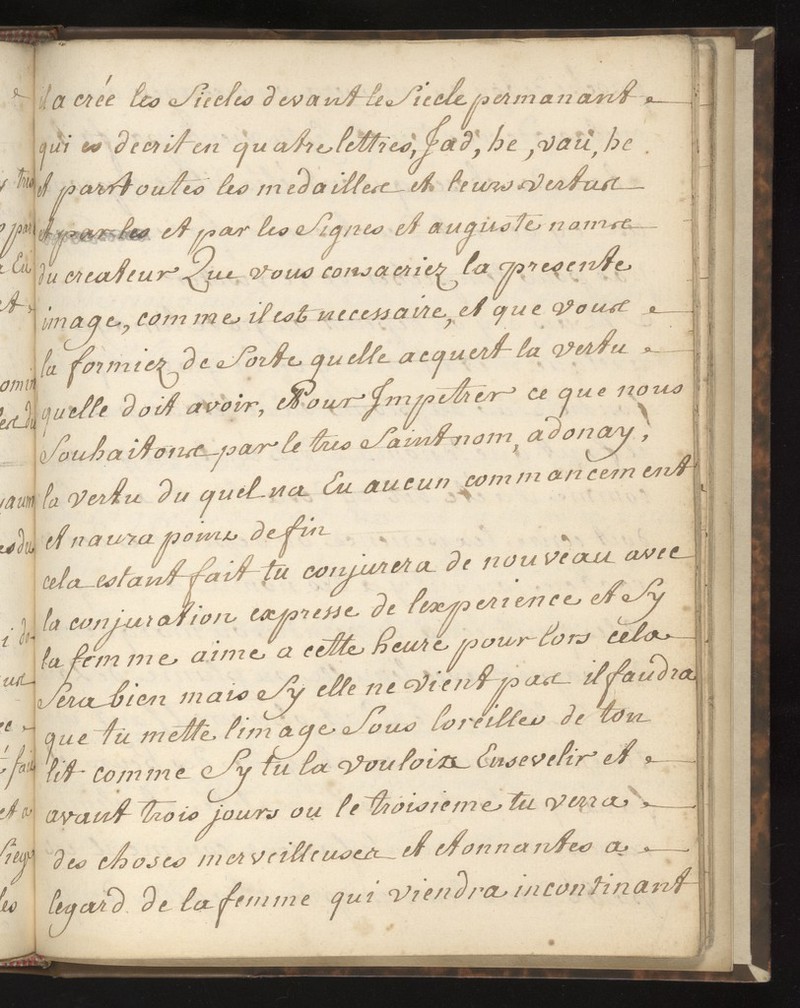 il a creé les Siecles devant le Siecle permanant
qui es decrit en quatre lettres, Jad, he, vau, he.
et par toutes les medailles et leurs vertus
et par les et par les Signes et auguste noms
du createur Que vous consacriez la presente
image, comme il est necessaire, et que vous
la formiez de Sorte quelle acquert la vertu
quelle doit avoir, et Pour Jmpetrer ce que nous
Souhaitons par le tres Saint nom, adonay,
la vertu du quel na Eu aucun commancement
et naura point de fin
cela estant fait tu conjurera de nouveau avec
la conjuration expresse de lexperience et Sy
la femme aime a cette heure pour lors cela
Sera bien mais Sy elle ne vient pas il faudra
que tu mette limage Sous loreilles de ton
lit comme Sy tu la vouloiz Ensevelir et
avant trois jours ou le troisieme tu verra
des choses merveilleuses et etonnantes a
legard de la femme qui viendra incontinant